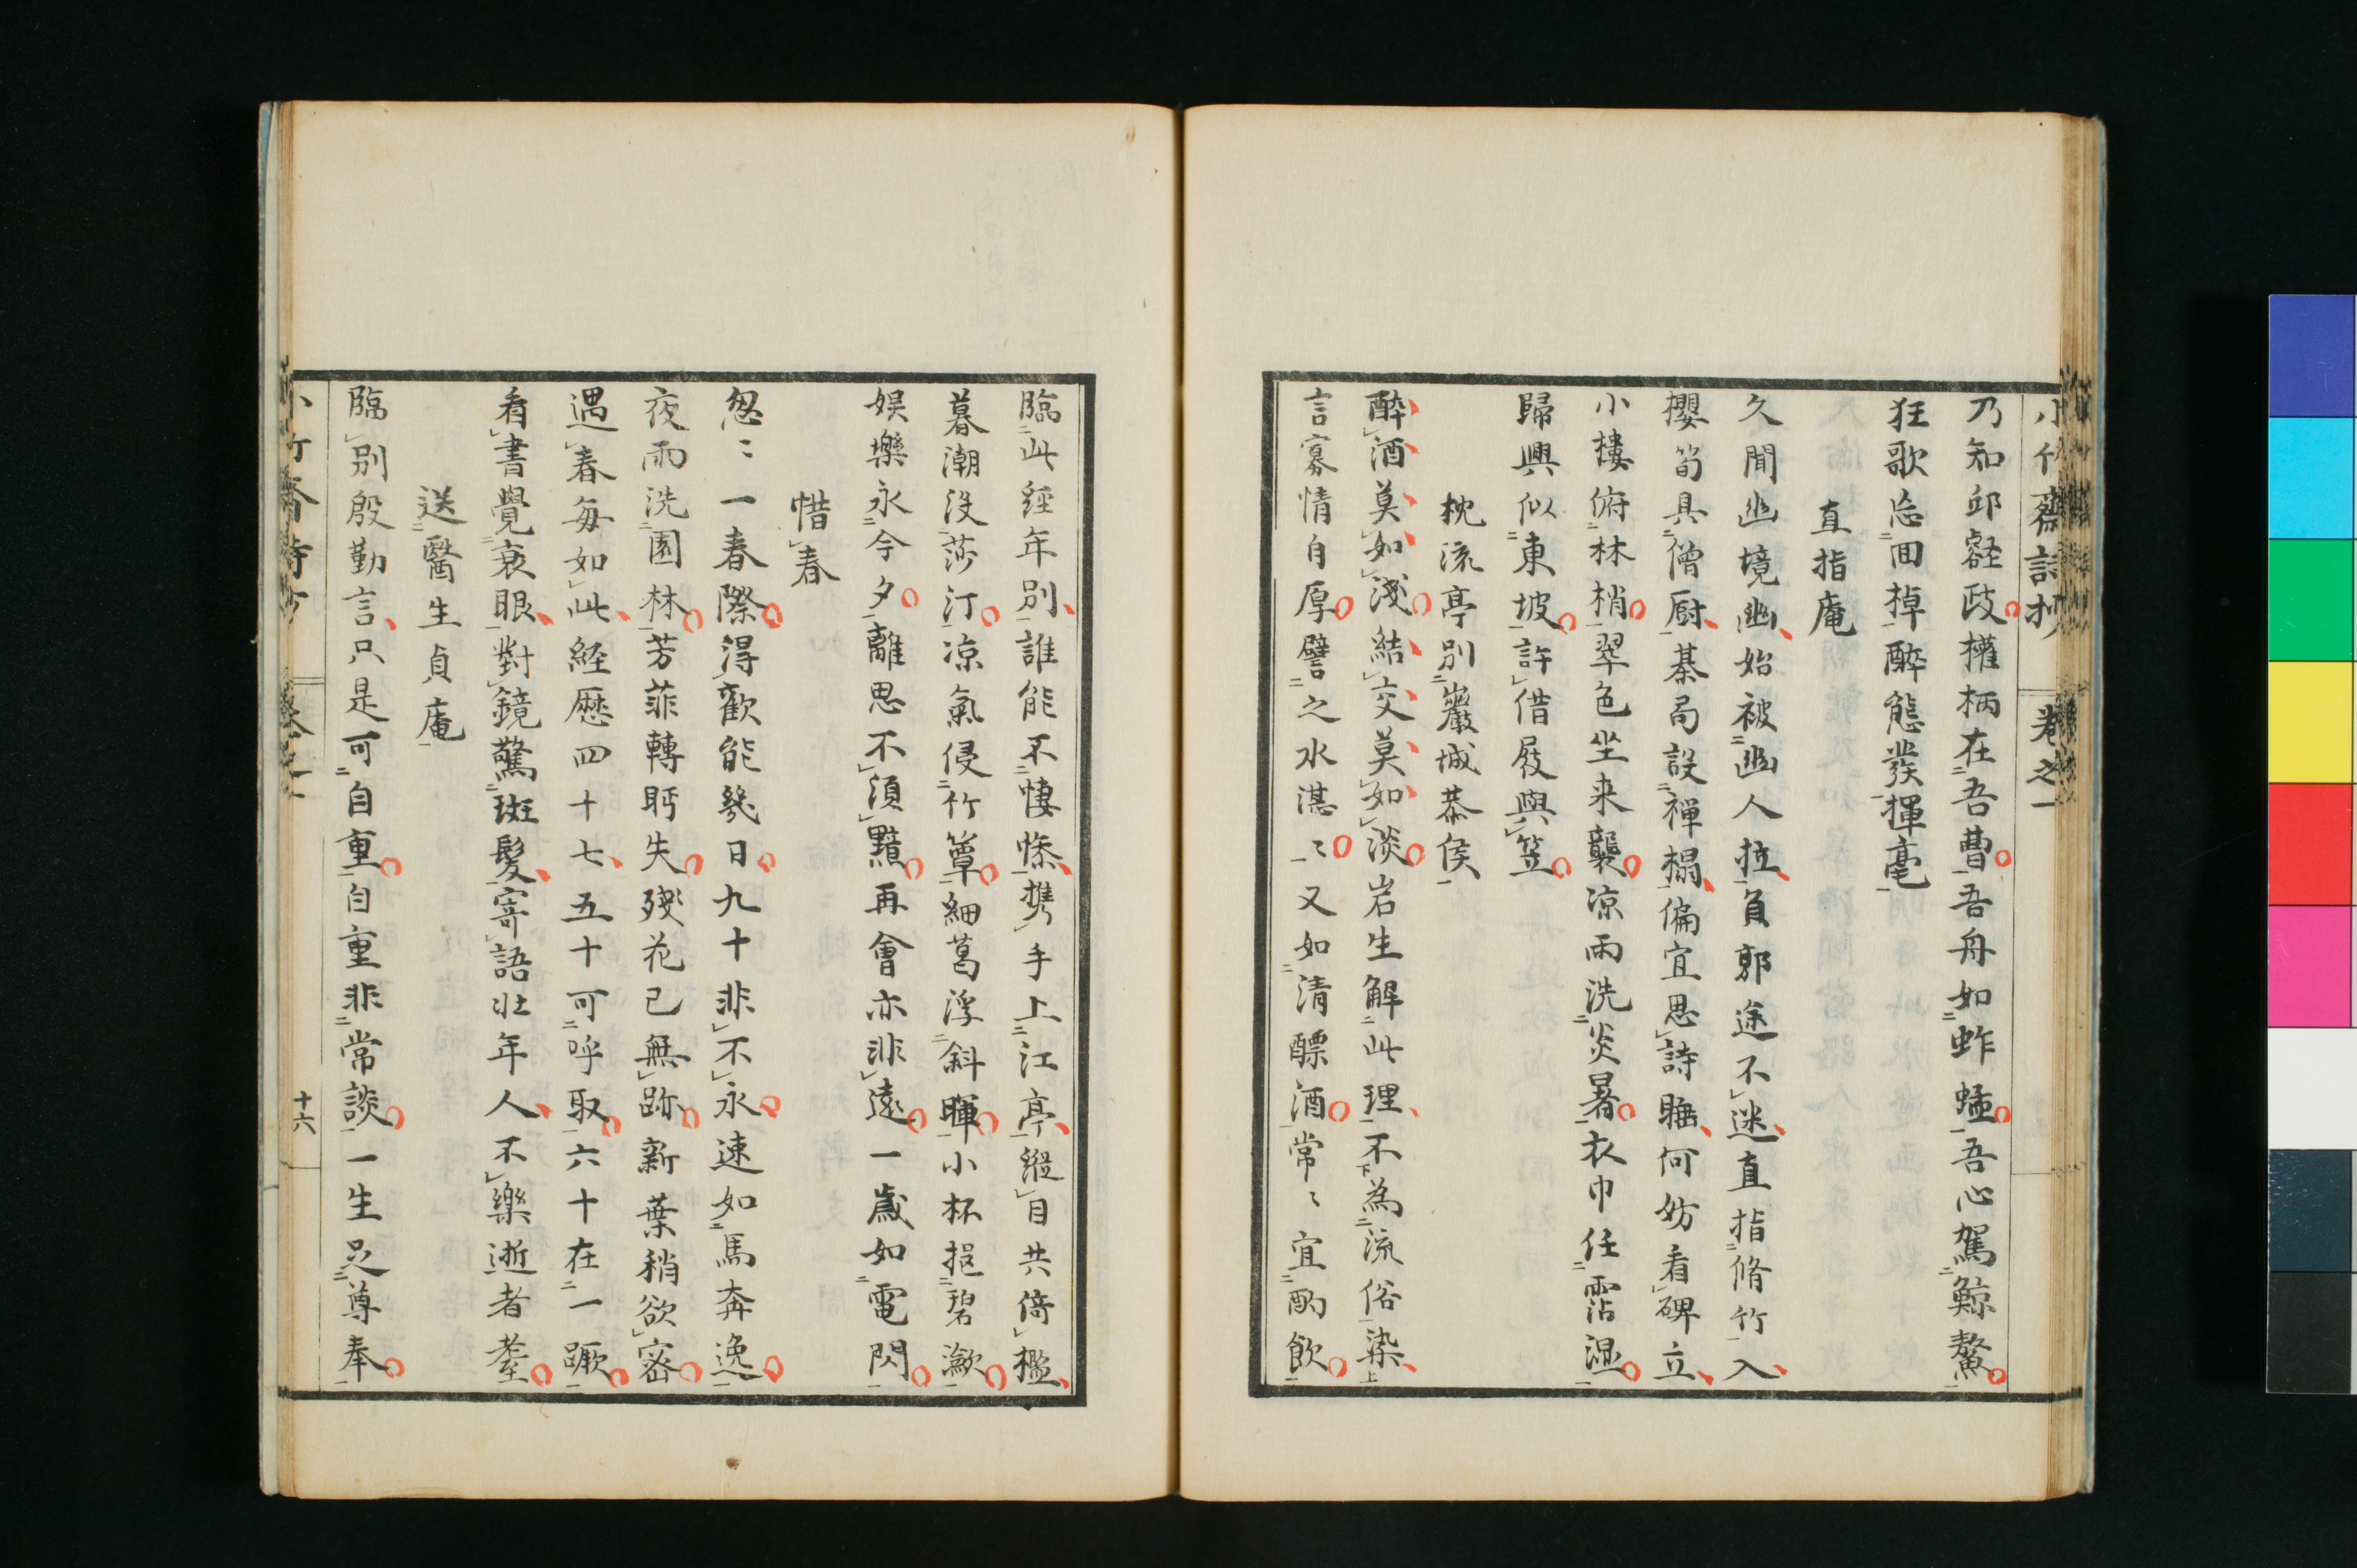 小竹齋詩抄 卷之一
乃知邱壑政權柄在吾曹吾舟如蚱蜢吾心駕鯨鰲
狂歌忘回棹醉態發揮毫
直指庵
久聞幽境幽始被幽人拉負郭途不迷直指脩竹入
攖筍具僧厨棊局設禅榻偏宜思詩睡何妨看碑立
小樓俯林梢翠色坐来襲凉雨洗炎暑衣巾任霑湿
歸興似東坡許借屐與笠
枕流亭別巖城恭侯
醉酒莫如淺結交莫如淡岩生解此理不為流俗染
言寡情自厚譬之水湛〻又如清醥酒常〻宜酌飲
臨此經年別誰能不悽慘携手上江亭縱目共倚檻
暮潮没莎汀凉氣侵竹簟細葛浮斜暉小杯挹碧瀲
娯樂永今夕離思不須黯再會亦非遠一歳如電閃
惜春
怱〻一春際得歡能幾日九十非不永速如馬奔逸
夜雨洗園林芳菲轉眄失殘花已無跡新葉稍欲密
遇春毎如此経歴四十七五十可呼取六十在一蹶
看書覺衰眼對鏡驚斑髮寄語壮年人不樂逝者耋
送醫生貞庵
臨別殷勤言只是可自重自重非常談一生足尊奉
小竹齋詩抄 卷之一 十六